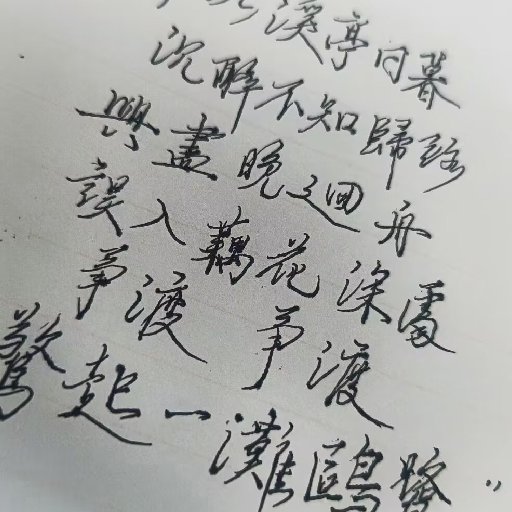 溪亭日暮
沉醉不知歸路
興盡晚迴舟
誤入藕花深處
爭渡 爭渡
驚起一灘鷗鷺